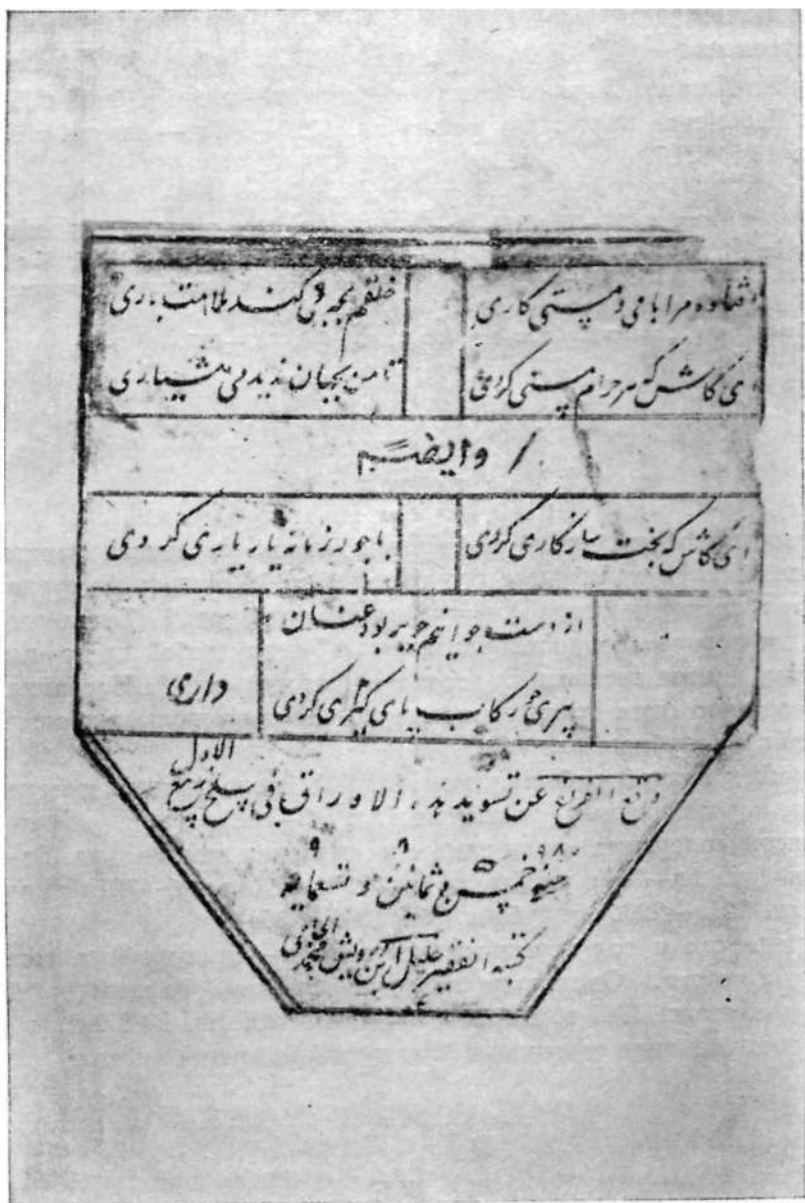 افتاده مرا بامی و مستی کاری
خلقم بچه می کند ملامت باری
ای کاش که هر حرام مستی کردی
تا من بجهان ندیدمی هشیاری
وایضا
ای کاش که بخت سازگاری کردی
با جور زمانه یار یاری کردی
از دست جوانیم چو بربود عنان
پیری چو رکاب پای
کردی
داری
وقع الفراغ عن تسوید هذه الاوراق فی سلخ ربیع الاول
خمس و ثمانین و تسعمایه
کتبه الفقیر ابن درویش محمد